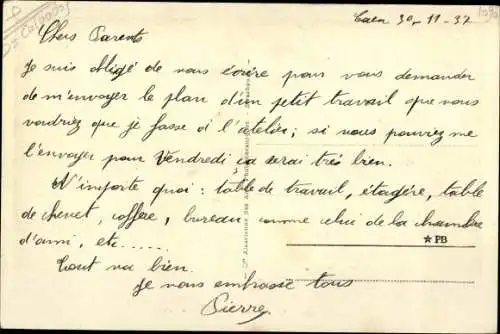 Caen 30-11-37
Chers Parents
Je suis obligé de vous écrire pour vous demander
de m'envoyer le plan d'un petit travail que vous
voudriez que je fasse à l'atelier ; si vous pouviez me
l'envoyer pour Vendredi ça serai très bien.
N'importe quoi : table de travail, étagère, table
de chevet, coffere, bureau comme celui de la chambre
d'ami, etc......
★ PB
Tout va bien.
Je vous embrasse tous
Pierre